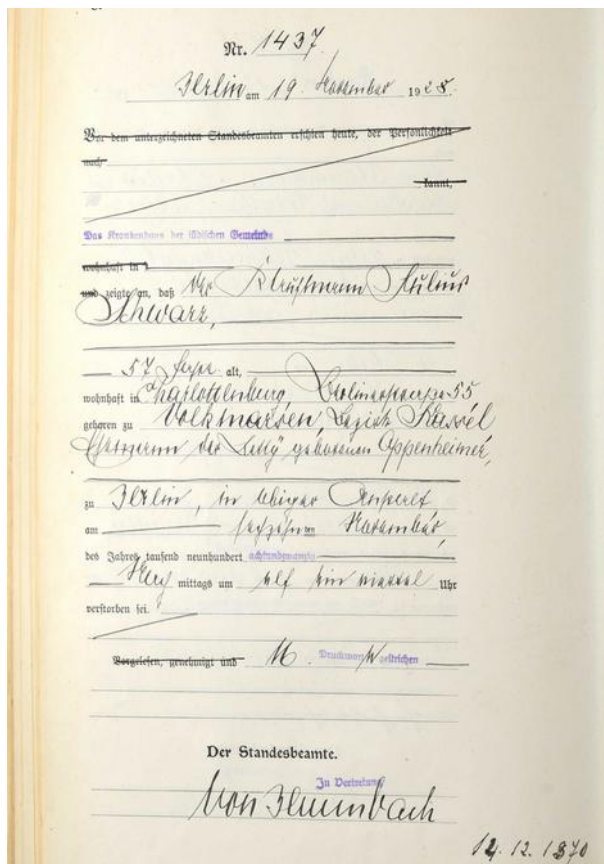 Nr. 1437.
Berlin am 19. November 1928.
Vor dem unterzeichneten Standesbeamten erschien heute, der Persönlichkeit
nach
kannt,
Das Krankenhaus der jüdischen Gemeinde
wohnhaft in
und zeigte an, daß der Kaufmann Julius
Schwarz,
57 Jahre alt,
wohnhaft in Charlottenburg, Berlinerstraße 55
geboren zu Volkmarsen, Bezirk Kassel
Ehemann der geborenen Oppenheimer,
zu Berlin, in obiger Anstalt
am sechzehnten November
des Jahres tausend neunhundert achtundzwanzig
Nachmittags um elf ein viertel Uhr
verstorben sei.
Vorgelesen, genehmigt und Druckworte gestrichen
Der Standesbeamte.
In Vertretung
Von
12. 12. 1870